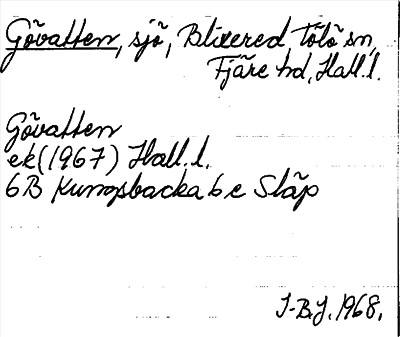 Gövatten, sjö, Blixered, Tölö sn,
Fjäre hd, Hall.l.
Gövatten
ek (1967) Hall.l.
6B Kungsbacka 6 c Släp
I-B.J. 1968.